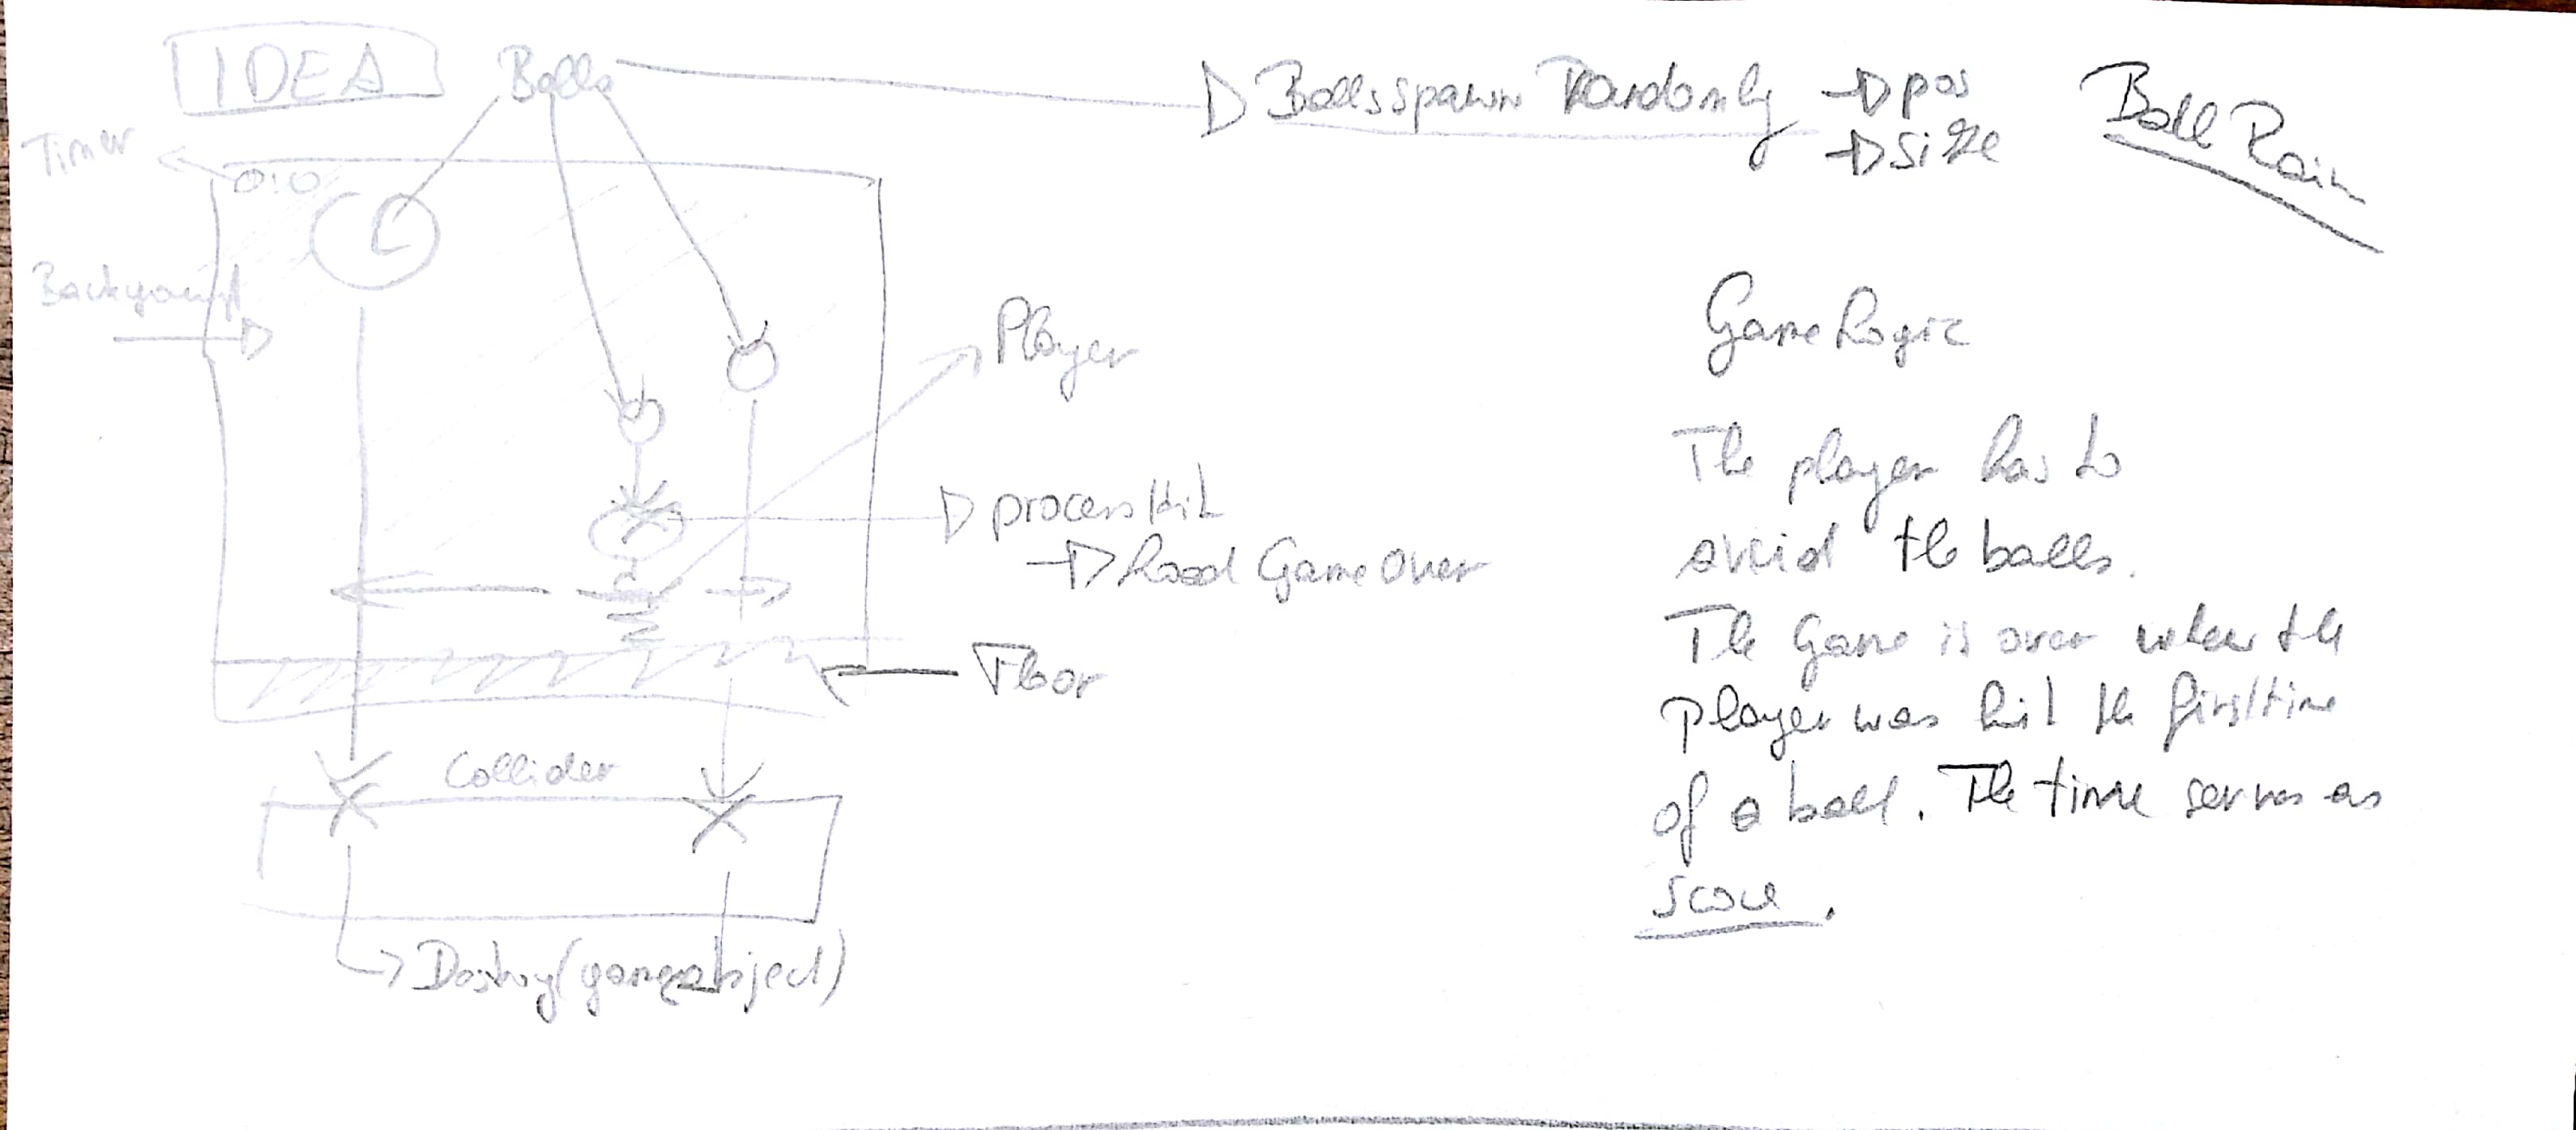 IDEA
Balls
Balls spawn Randomly
→ pos
→ size
Ball Rain
Timer
0:0
Background
Player
process Hit
→ Load Game Over
Floor
Collider
Destroy(gameobject)
Game Logic
The player has to
avoid the balls.
The Game is over when the
player was hit the first time
of a ball. The time serves as
score.